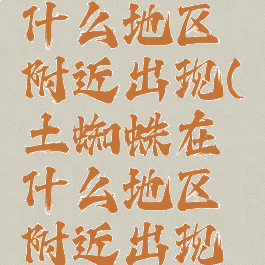 什么地区
附近出现(
土蜘蛛在
什么地区
附近出现